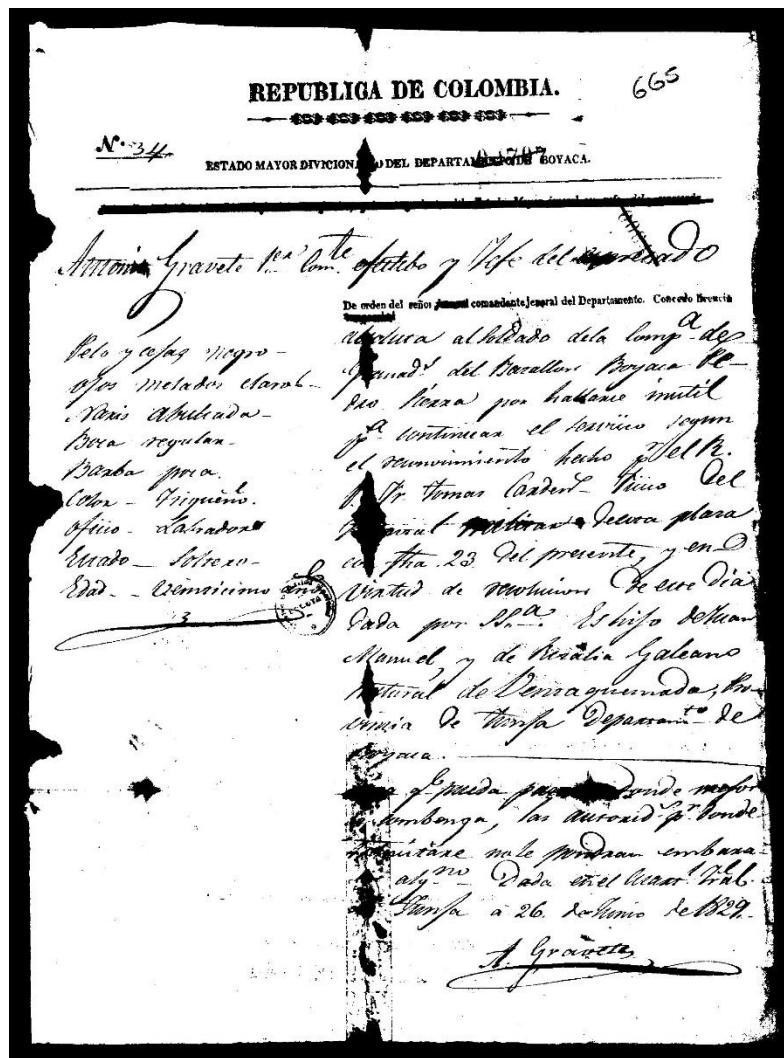 665
REPUBLICA DE COLOMBIA.
Nº 34
ESTADO MAYOR DIVICION DEL DEPARTAMENTO DE BOYACA.
Antonio Gravete 1er Comte efectibo y Jefe del
De orden del señor comandante jeneral del Departamento. Concedo licencia
absoluta al soldado dela Compa de
Granads del Batallon Boyaca Pe-
dro por hallarse inutil
pa continuar el servicio segun
el reconocimiento hecho pr el R.
P. Fr. Tomas
militar plaza
con fha. 23 del presente, y en
virtud de resolucion de este dia
dada por SSa. Es hijo de Juan
Manuel, y de Rosalia Galeano
natural de Ventaquemada, Pro-
vincia de Tunja Departamto de
Boyaca.
qe pueda donde mejor
le combenga, las autorids pr donde
transitare no le pondran embara-
algno Dada en el Cuartl Jral
Tunja a 26 de Junio de 1829.
A. Gravete
Pelo y cejas negro-
ojos melados claros-
Naris abultada-
Boca regular-
Barba poca.
Color - Trigueño.
Oficio - Labrador
Estado - Soltero-
Edad -